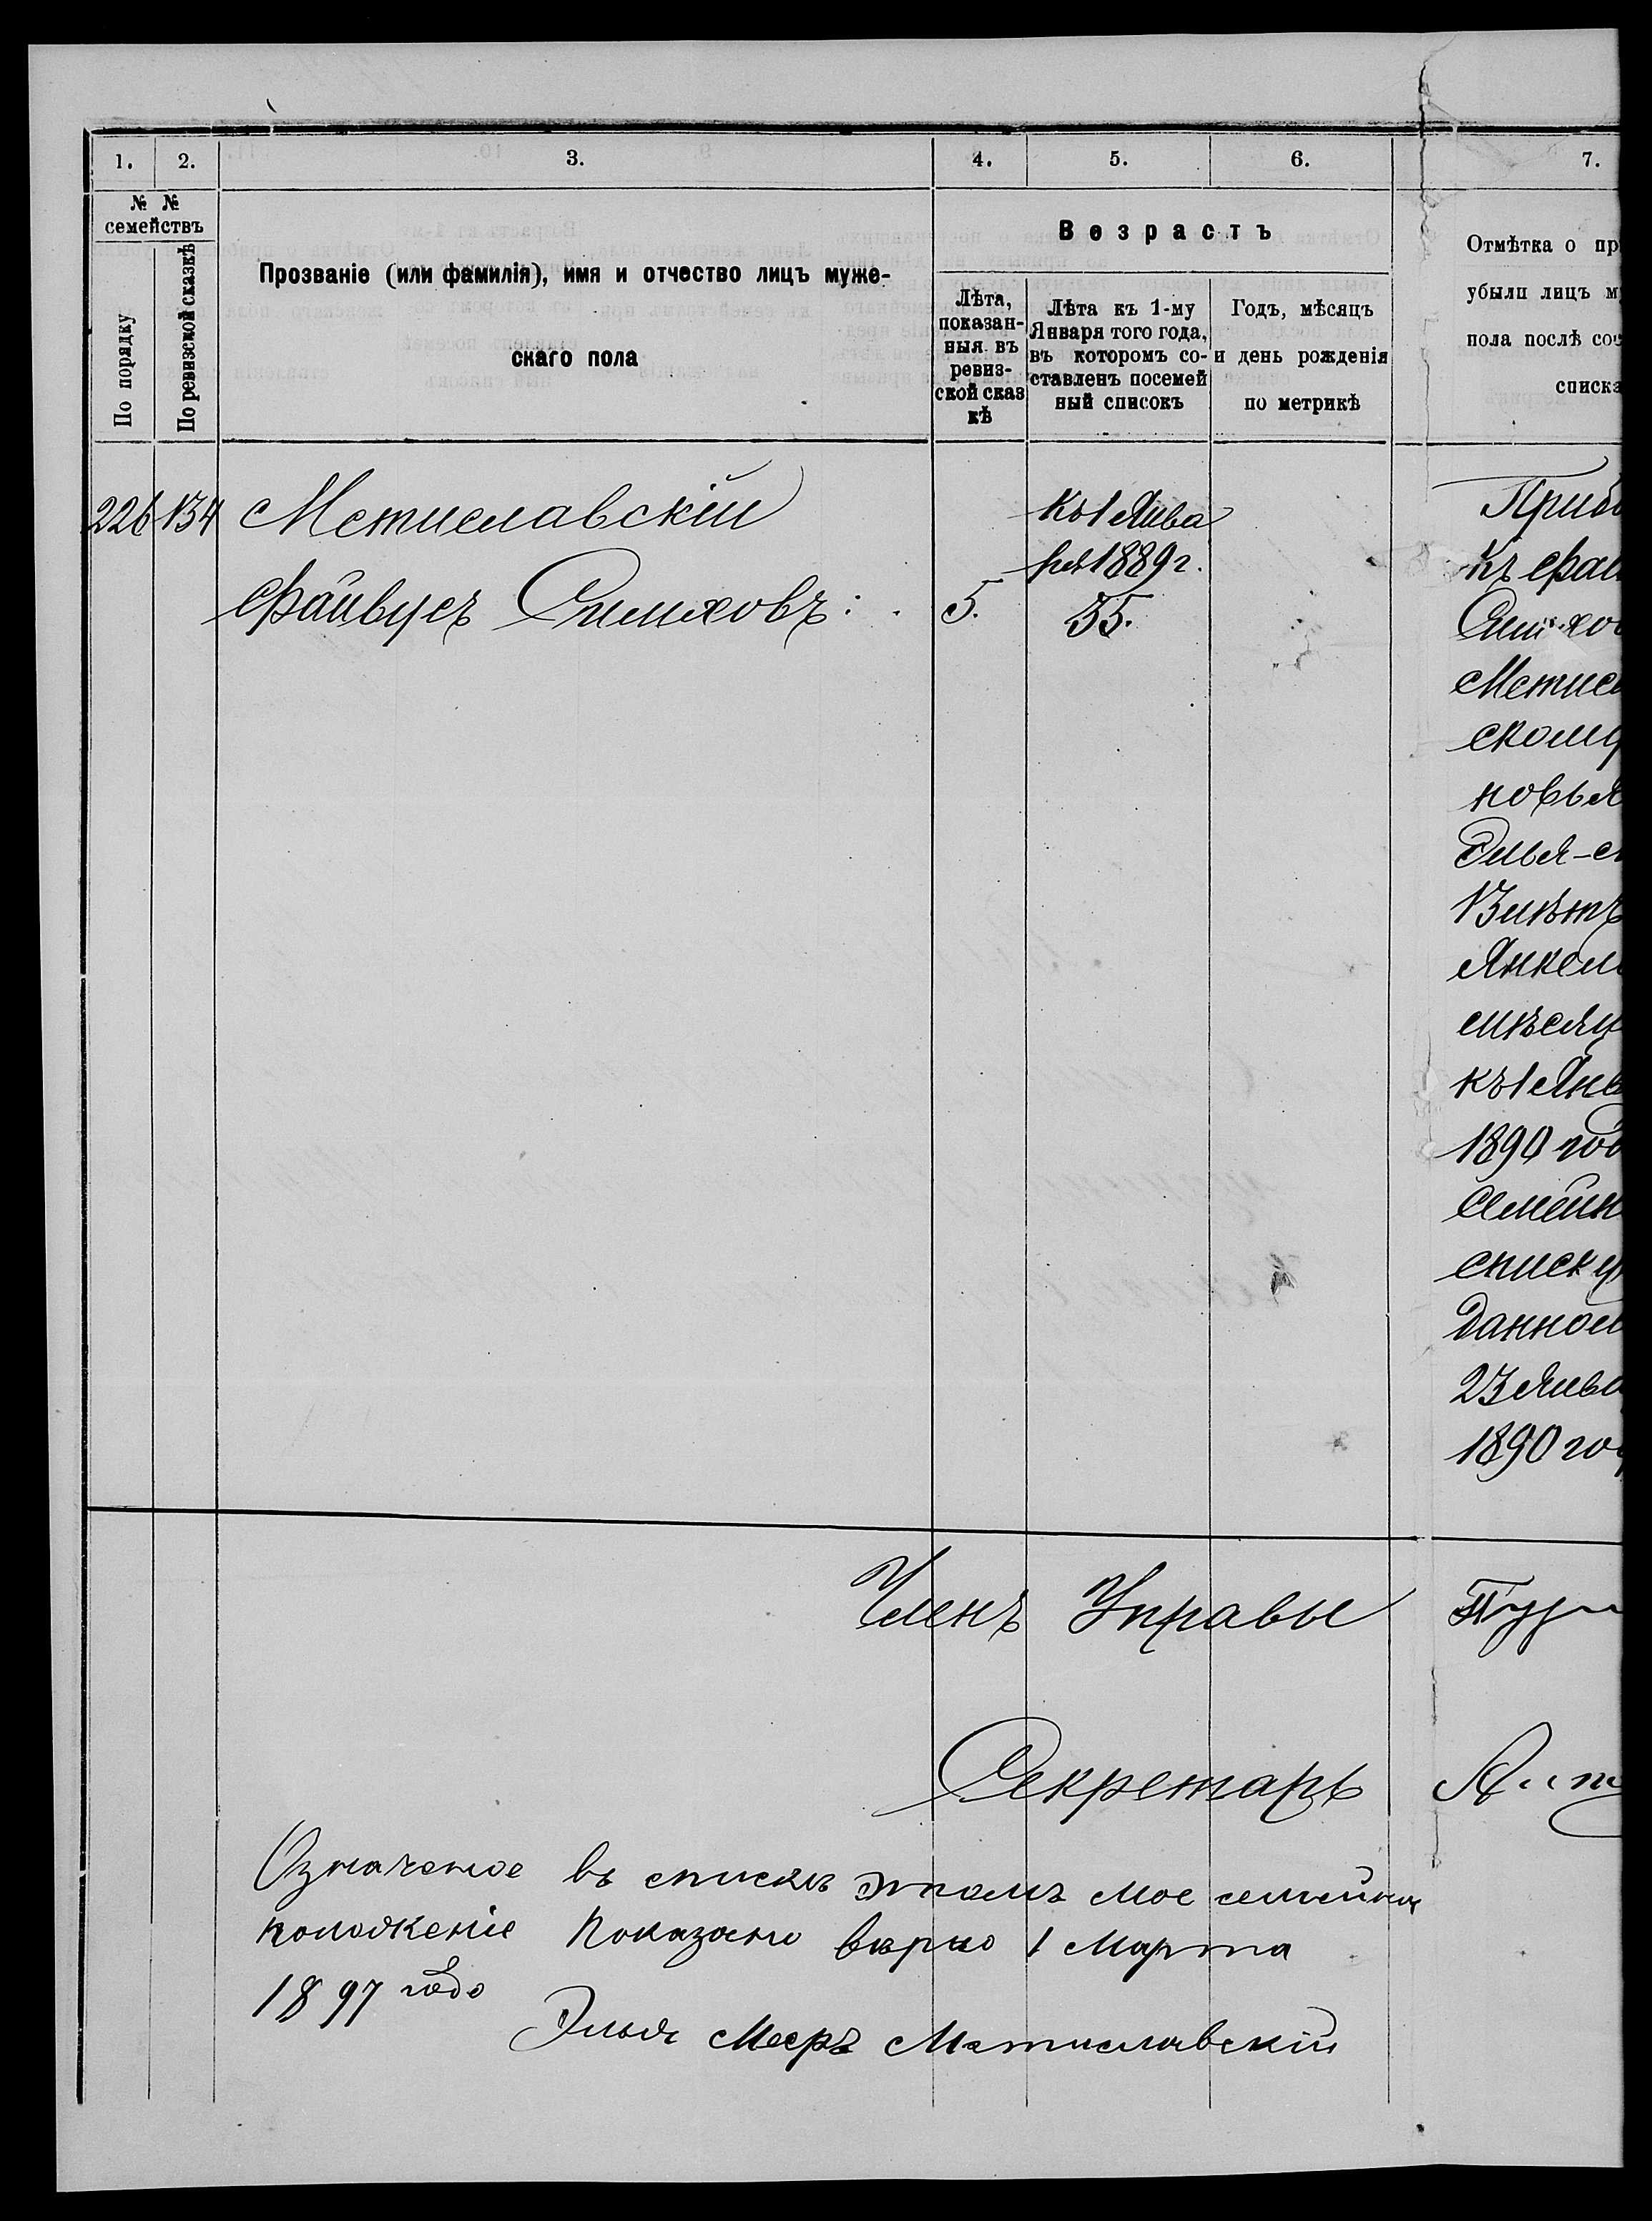 1. 2. 3. 4. 5. 6. 7.
№ №
семействъ
По порядку
По ревизской сказкѣ
Прозваніе (или фамилія), имя и отчество лицъ муже-
скаго пола
Возрастъ
Лѣта,
показан-
ныя въ
ревиз-
ской сказ
кѣ
Лѣта къ 1-му
Января того года,
въ которомъ со-
ставленъ посемей
ный списокъ
Годъ, мѣсяцъ
и день рожденія
по метрикѣ
Отмѣтка о пр
убыли лицъ м
пола послѣ сос
списка
226 134 Мстиславскій
Къ 1 Янва
ря 1889 г.
Файвусъ Симховъ 5. 35.
Приб
къ Фай
Симхов
Мстисл
скому
новья
Элья-
Янкел
мѣсяц
къ 1 Янв
1890 год
Семейн
списку
данном
23 Янва
1890 го
Членъ Управы
Секретарь
Означеное въ спискѣ этомъ мое семейное
положеніе показано вѣрно 1 Марта
1897 года
Элья Мееръ Мстиславскій